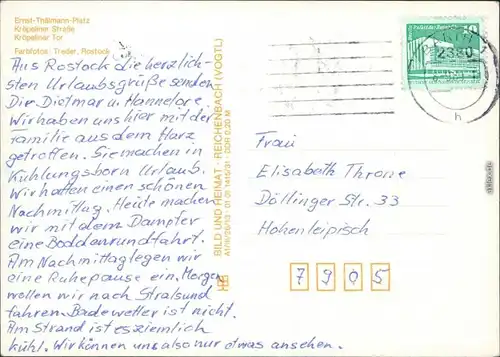 Ernst-Thälmann-Platz
Kröpeliner Straße
Kröpeliner Tor
Farbfotos: Treder, Rostock
Aus Rostock die herzlich-
sten Urlaubsgrüße senden
Dir Dietmar u. Hannelore.
Wir haben uns hier mit der
Familie aus dem Harz
getroffen. Sie machen in
Kühlungsborn Urlaub.
Wir hatten einen schönen
Nachmittag. Heute machen
wir mit dem Dampfer
eine Boddenrundfahrt.
Am Nachmittag legen wir
eine Ruhepause ein. Morgen
wollen wir nach Stralsund
fahren. Badewetter ist nicht.
Am Strand ist es ziemlich
kühl. Wir können uns also nur etwas ansehen.
BILD UND HEIMAT · REICHENBACH (VOGTL)
DDR 0,20 M
2380
h
Frau
Elisabeth Throne
Döllinger Str. 33
Hohenleipisch
7905